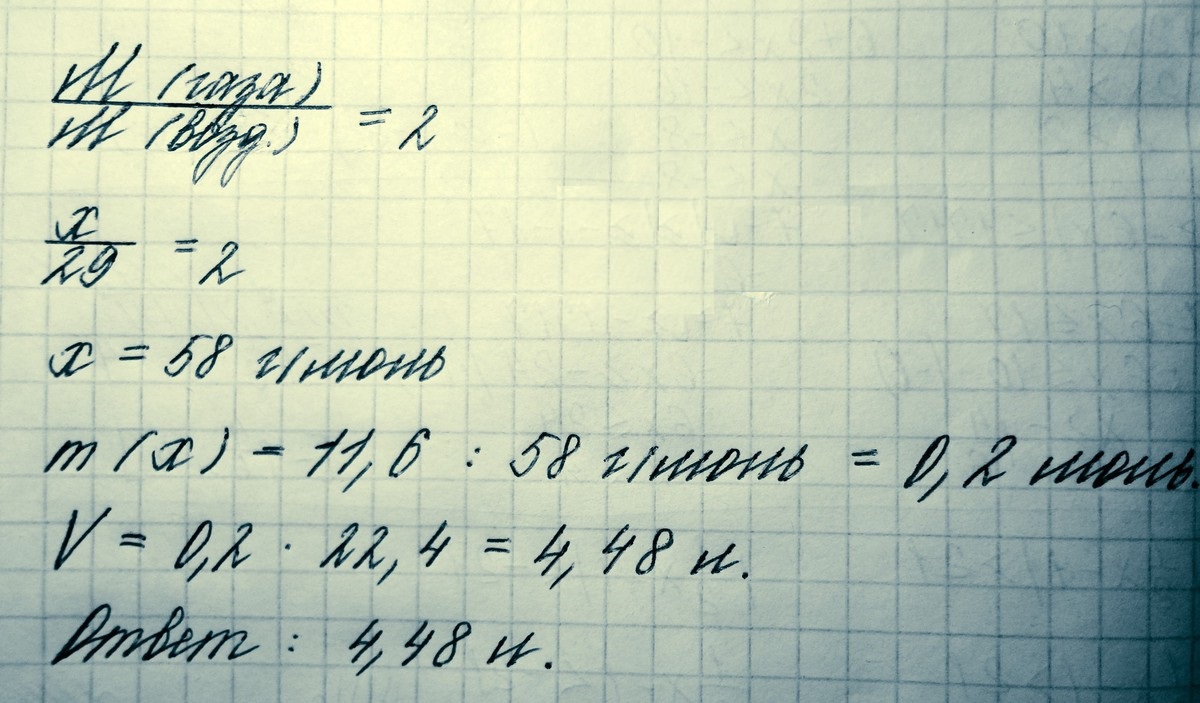 M (газа)
M (возд.) = 2
x
29 = 2
x = 58 г/моль
m (x) = 11,6 : 58 г/моль = 0,2 моль.
V = 0,2 · 22,4 = 4,48 л.
Ответ : 4,48 л.